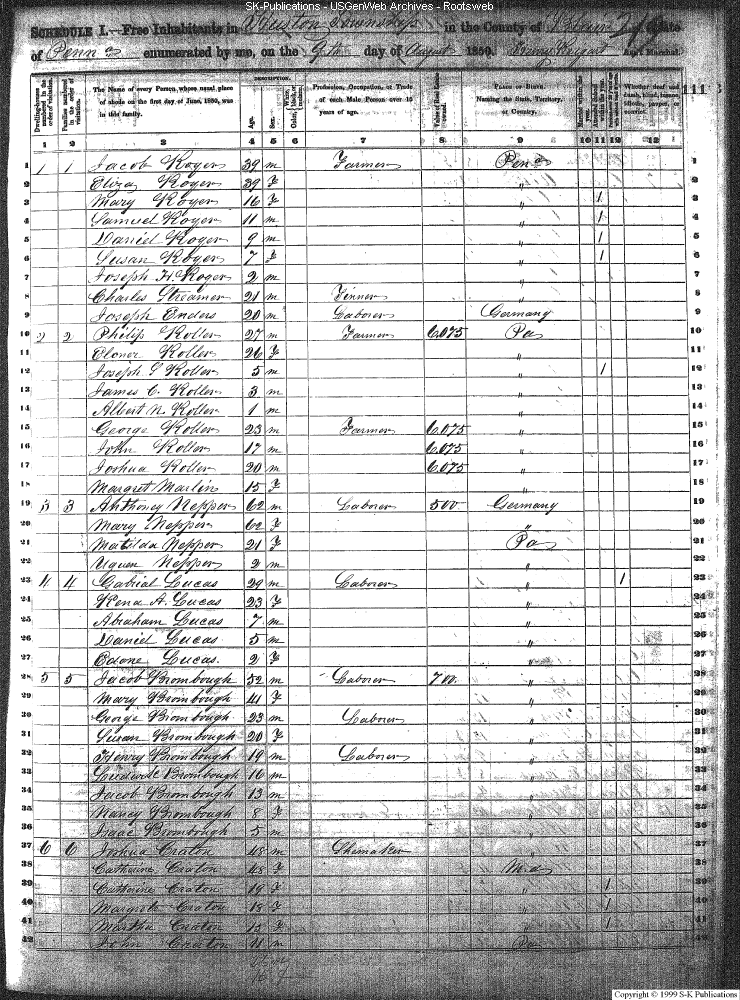 SK-Publications - USGenWeb Archives - Rootsweb
SCHEDULE I.—Free Inhabitants in Huston Township in the County of Blair State
of Penna enumerated by me, on the 9th day of August 1850. Ass't Marshal.
Dwelling-houses numbered in the order of visitation.
Families numbered in the order of visitation.
The Name of every Person whose usual place of abode on the first day of June, 1850, was in this family.
DESCRIPTION.
Age.
Sex.
Color, White, black, or mulatto.
Profession, Occupation, or Trade of each Male Person over 15 years of age.
Value of Real Estate owned.
PLACE OF BIRTH. Naming the State, Territory, or Country.
Married within the year.
Attended School within the year.
Whether deaf and dumb, blind, insane, idiotic, pauper, or convict.
1 2 3 4 5 6 7 8 9 10 11 12 13
1 1 1 Jacob Royer 39 m Farmer Pena 1
2 Eliza Royer 39 F " 2
3 Mary Royer 16 F " 1 3
4 Samuel Royer 11 m " 1 4
5 Daniel Royer 9 m " 1 5
6 Susan Royer 7 F " 1 6
7 Joseph H Royer 2 m " 7
8 Charles Streamer 21 m Tinner " 8
9 Joseph Enders 20 m Laborer Germany 9
10 2 2 Philip Roller 27 m Farmer 6,075 Pa 10
11 Eloner Roller 26 F " 11
12 Joseph S Roller 5 m " 1 12
13 James C. Roller 3 m " 13
14 Albert N. Roller 1 m " 14
15 George Roller 23 m Farmer 6,075 " 15
16 John Roller 17 m 6,075 " 16
17 Joshua Roller 20 m 6,075 " 17
18 Margret Marlin 15 F " 18
19 3 3 Anthoney Nepper 62 m Laborer 500 Germany 19
20 Mary Nepper 62 F " 20
21 Matilda Nepper 21 F Pa 21
22 Nepper 2 m " 22
23 4 4 Gabrial Lucas 29 m Laborer " 1 23
24 Rena A. Lucas 23 F " 24
25 Abraham Lucas 7 m " 25
26 Daniel Lucas 5 m " 26
27 Lucas 2 F " 27
28 5 5 Jacob Brombough 52 m Laborer 700 " 28
29 Mary Brombough 41 F " 29
30 George Brombough 23 m Laborer " 30
31 Susan Brombough 20 F " 31
32 Henry Brombough 19 m Laborer " 32
33 Brombough 16 m " 33
34 Jacob Brombough 13 m " 34
35 Nancy Brombough 8 F " 35
36 Isaac Brombough 5 m " 36
37 6 6 Joshua Craton 48 m Shumaker " 37
38 Catharine Craton 48 F Md 38
39 Catharine Craton 19 F " 1 39
40 Craton 15 F " 1 40
41 Martha Craton 13 F " 1 41
42 John Craton 11 m Pa 42
Copyright © 1999 S-K Publications